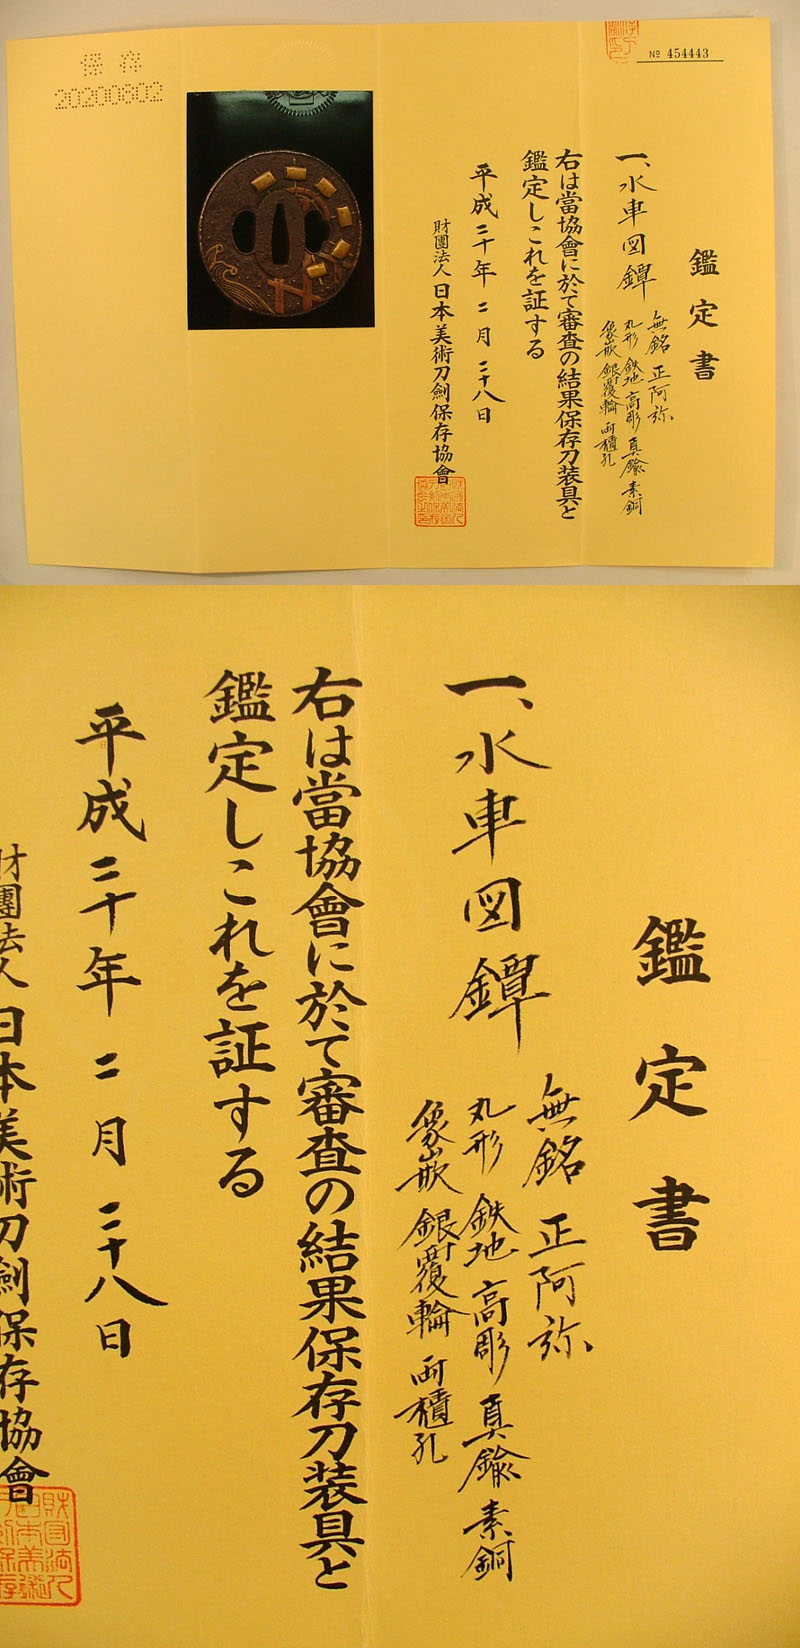 保存
20200802
No 454443
鑑定書
一、水車図鐔
無銘 正阿弥
丸形 鉄地 高彫 真鍮 素銅
象嵌 銀覆輪 両櫃孔
右は當協會に於て審査の結果保存刀装具と
鑑定しこれを証する
平成二十年 二月 二十八日
財團法人 日本美術刀劍保存協會
鑑定書
一、水車図鐔
無銘 正阿弥
丸形 鉄地 高彫 真鍮 素銅
象嵌 銀覆輪 両櫃孔
右は當協會に於て審査の結果保存刀装具と
鑑定しこれを証する
平成二十年 二月 二十八日
財團法人 日本美術刀劍保存協會